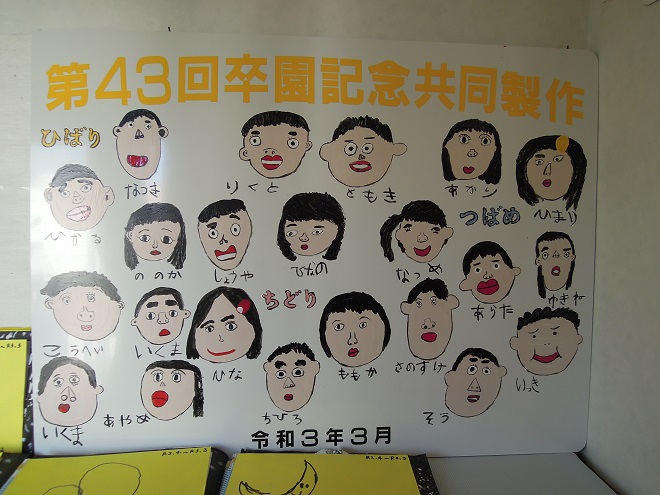 第43回卒園記念共同製作
ひばり
なつき
りくと
ともき
あかり
ひまり
ひかる
つばめ
ののか
しょうや
なつめ
あらた
ゆきね
ちどり
こうへい
いくま
ひな
ももか
さのすけ
いっき
いくま
あやめ
ちひろ
そう
令和3年3月
R2.4〜R3.3
R2.4〜R3.3